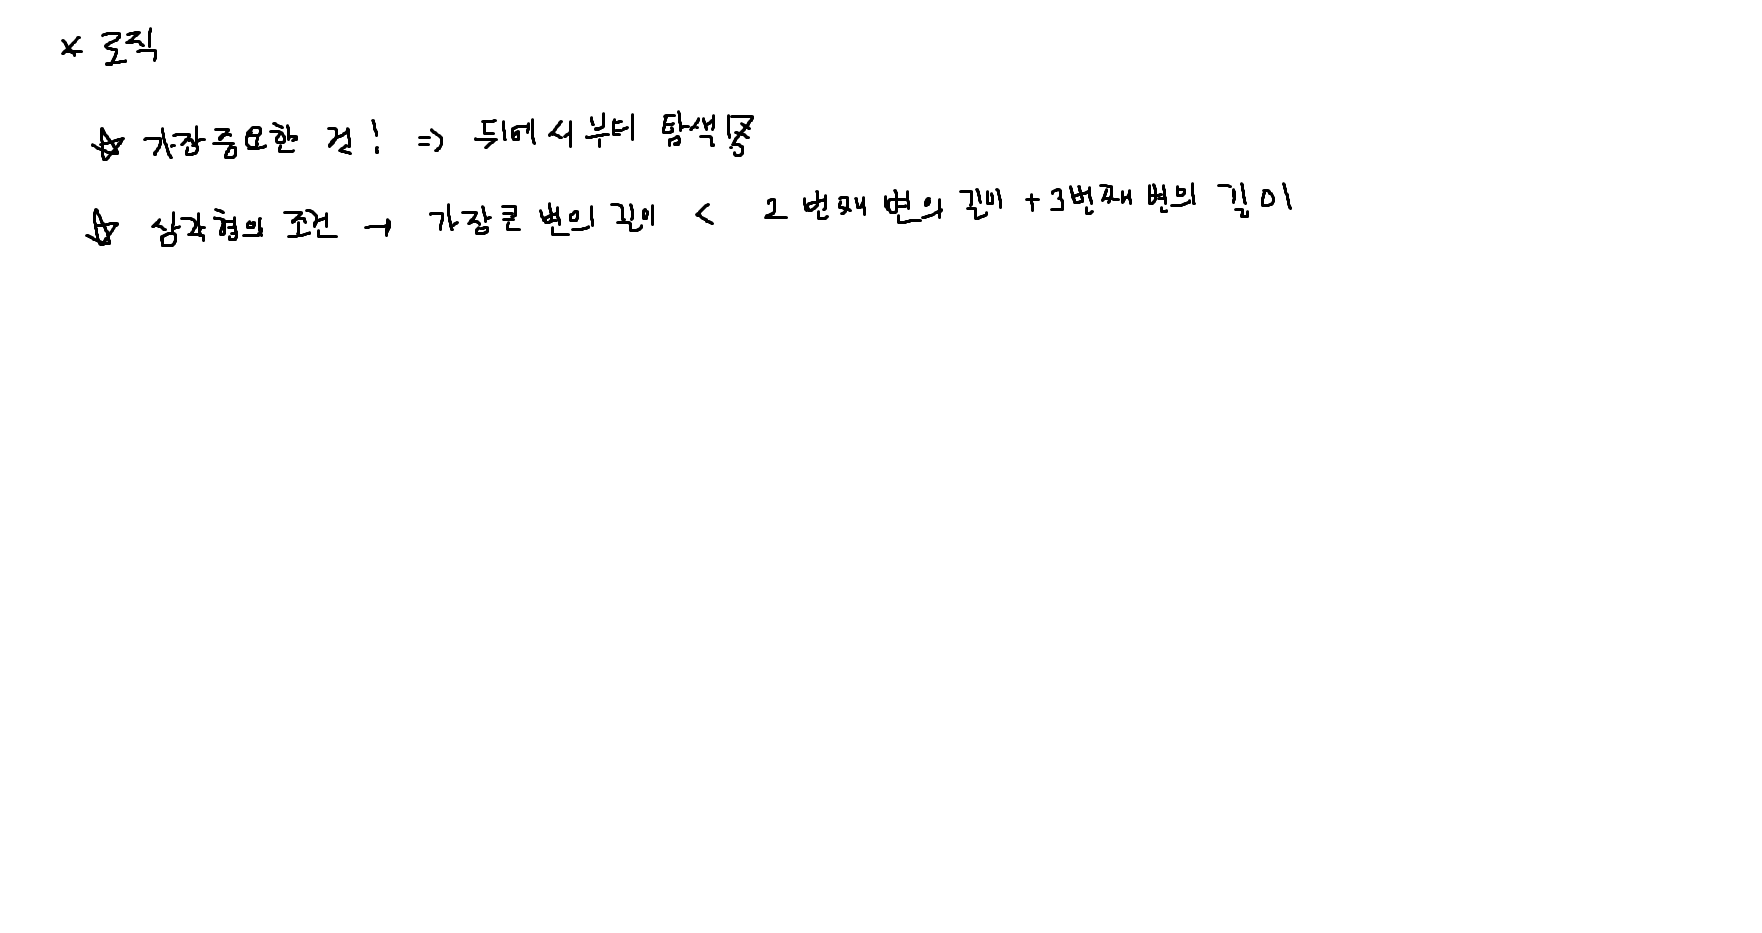 * 로직
☆ 가장 중요한 건! => 뒤에서부터 탐색
☆ 삼각형의 조건 → 가장 큰 변의 길이 < 2번째 변의 길이 + 3번째 변의 길이